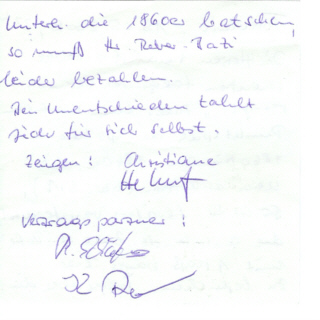 die 1860er batschen,
so muß Hr. Reber-Bazi
leider bezahlen.
Bei Unentschieden zahlt
jeder für sich selbst.
Zeugen: Christiane
Helmut
Vertragspartner: